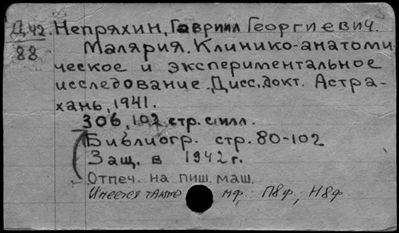 Д.42. Непряхин, Гавриил Георгиевич.
88 Малярия. Клинико-анатоми
ческое и экспериментальное
исследование. Дисс. докт. Астра-
хань, 1941.
306, 102 стр. с илл.
Библиогр. стр. 80-102
Защ. в 1942 г.
Отпеч. на пиш. маш.
Имеется также мф: П8ф; Н8ф